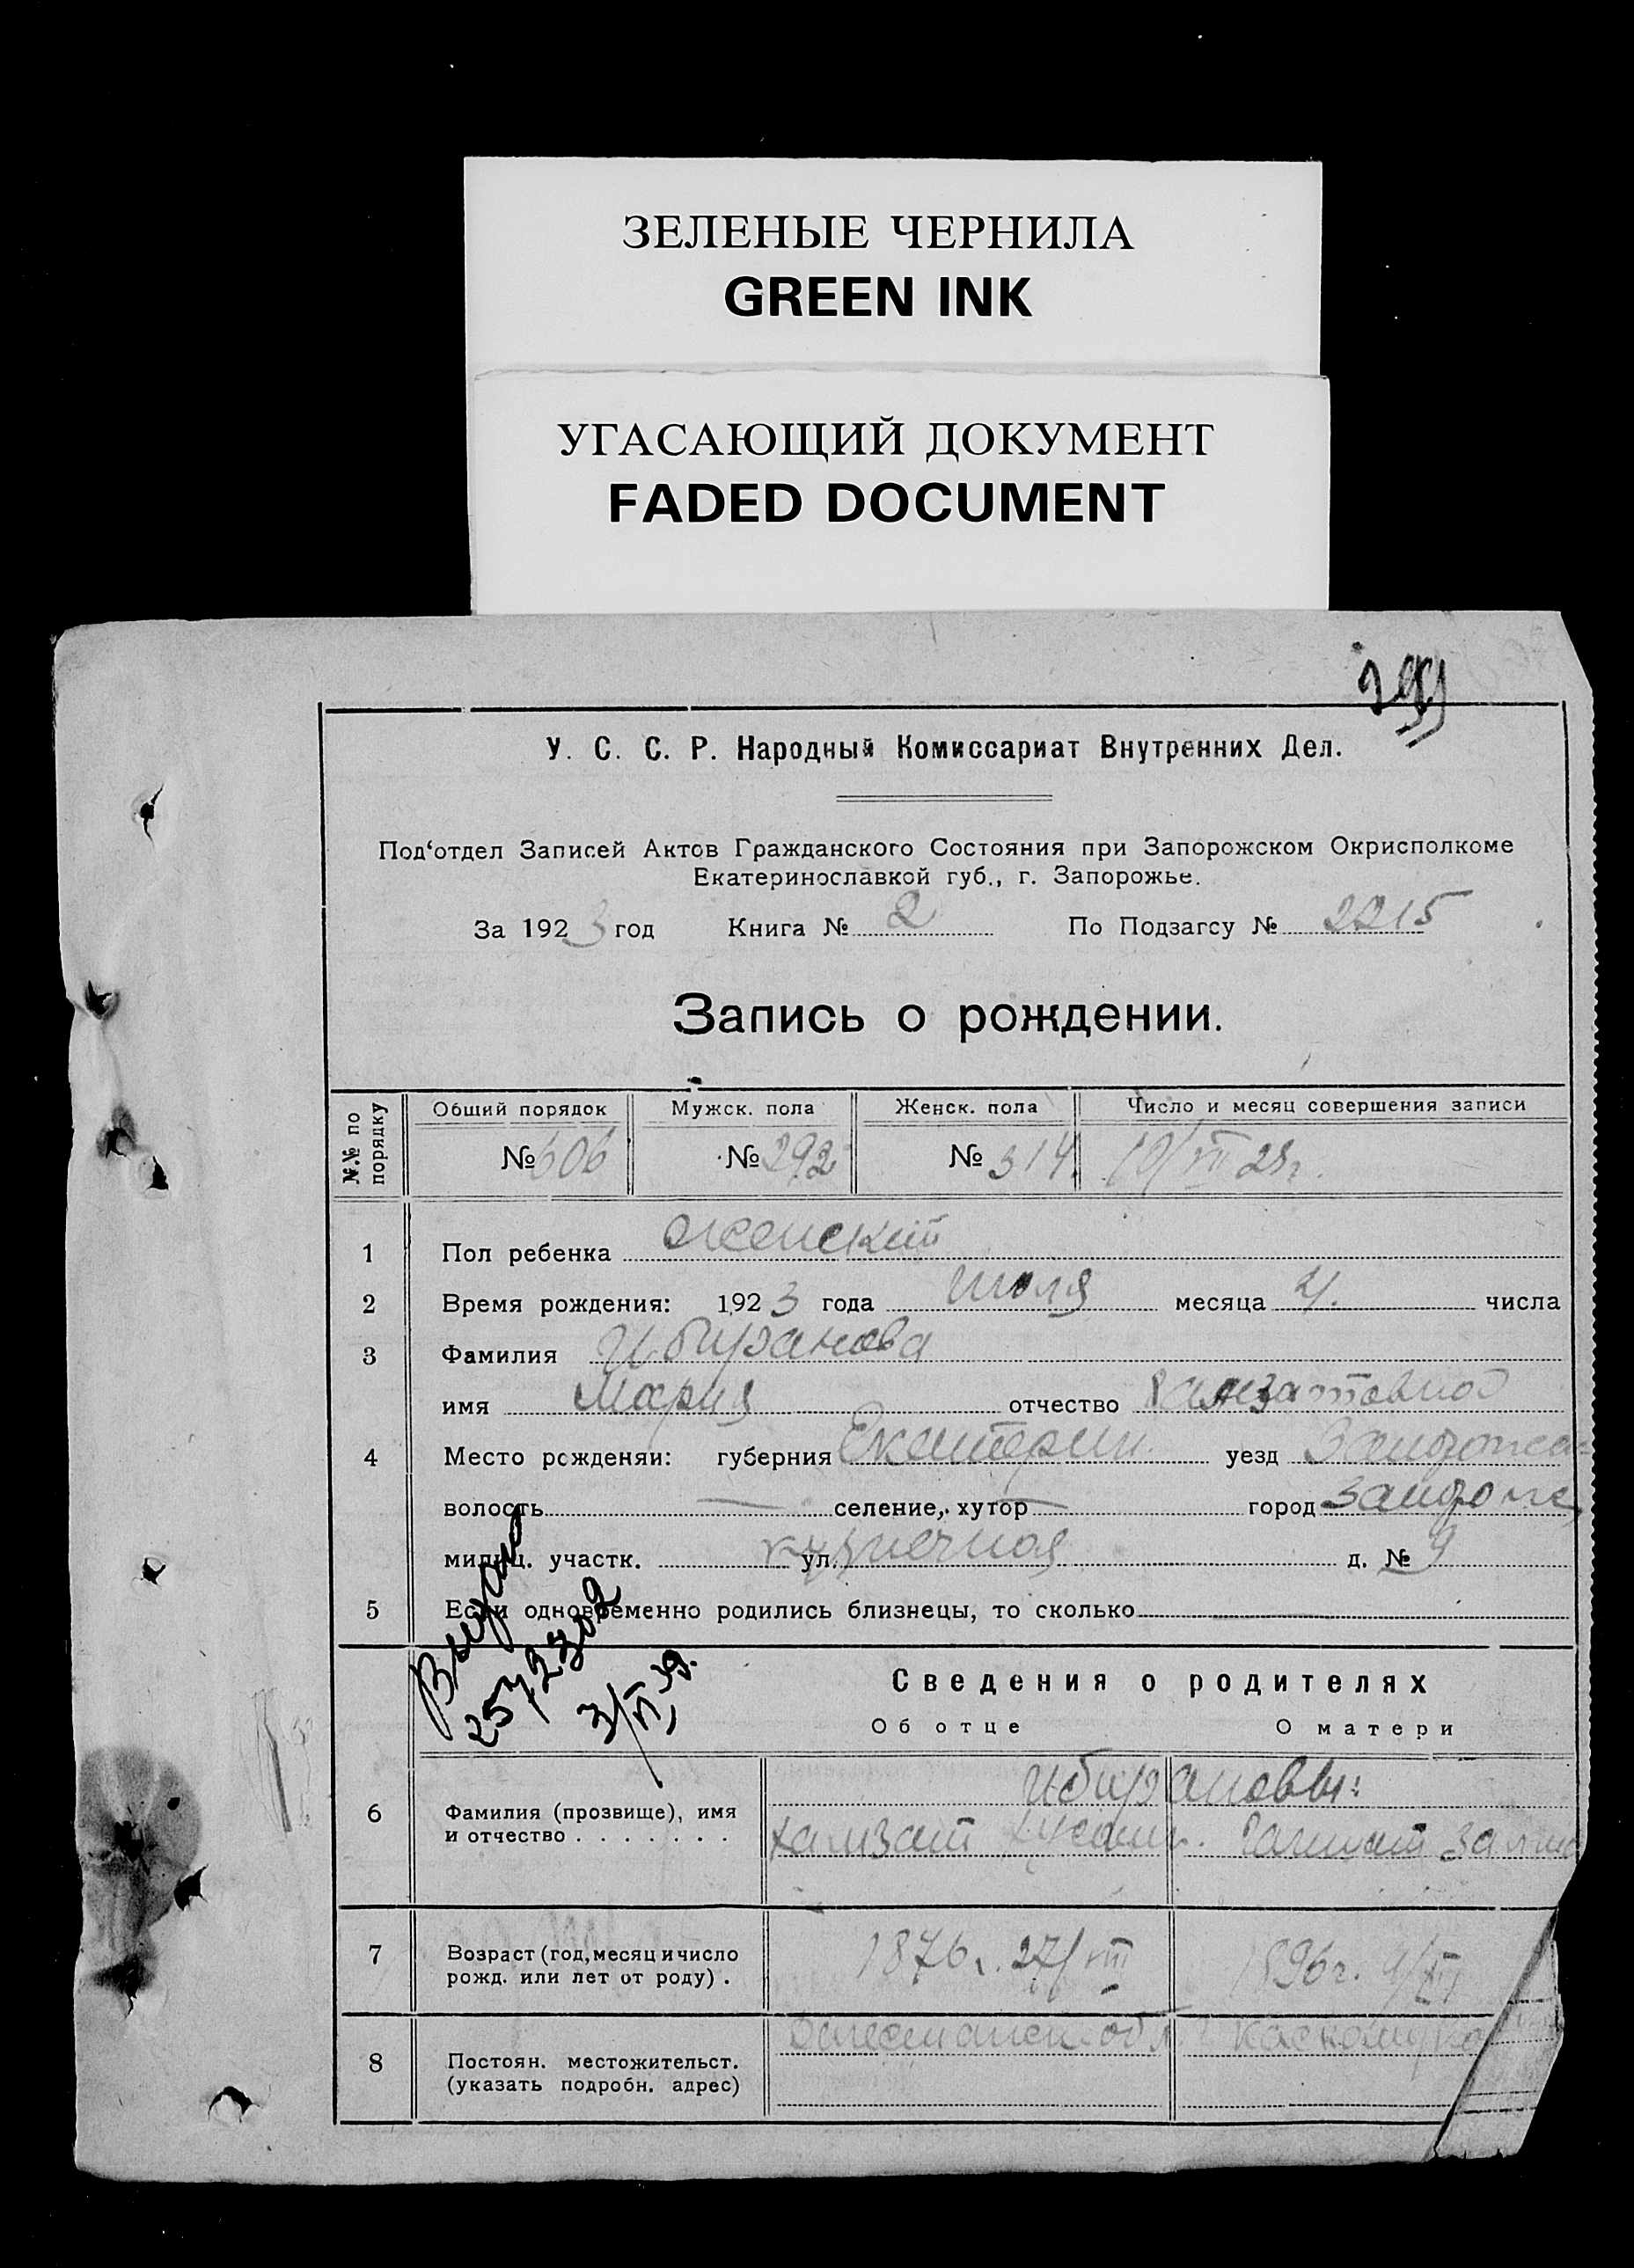 ЗЕЛЕНЫЕ ЧЕРНИЛА
GREEN INK
УГАСАЮЩИЙ ДОКУМЕНТ
FADED DOCUMENT
У. С. С. Р. Народный Комиссариат Внутренних Дел.
Под‘отдел Записей Актов Гражданского Состояния при Запорожском Окрисполкоме
Екатеринославкой губ., г. Запорожье.
За 1923 год Книга № 2 По Подзагсу № 2215
Запись о рождении.
№№ по порядку
Общий порядок Мужск. пола Женск. пола Число и месяц совершения записи
№ 606 № 292 № 314. 10/VII 23 г.
1 Пол ребенка женский
2 Время рождения: 1923 года июля месяца 4. числа
3 Фамилия Ибиранова
имя Мария отчество
4 Место рожденяи: губерния Екатерин. уезд Запорож
волость — селение, хутор — город Запорож
милиц. участк. ул. д. № 9
5 Если одновременно родились близнецы, то сколько
Выдано
3/VI 39.
Сведения о родителях
Об отце О матери
6 Фамилия (прозвище), имя Ибирановы:
и отчество . . . . . . . Хамзат
7 Возраст (год, месяц и число 1876 г. 27/VIII 1896 г.
рожд. или лет от роду) .
8 Постоян. местожительст.
(указать подробн. адрес)